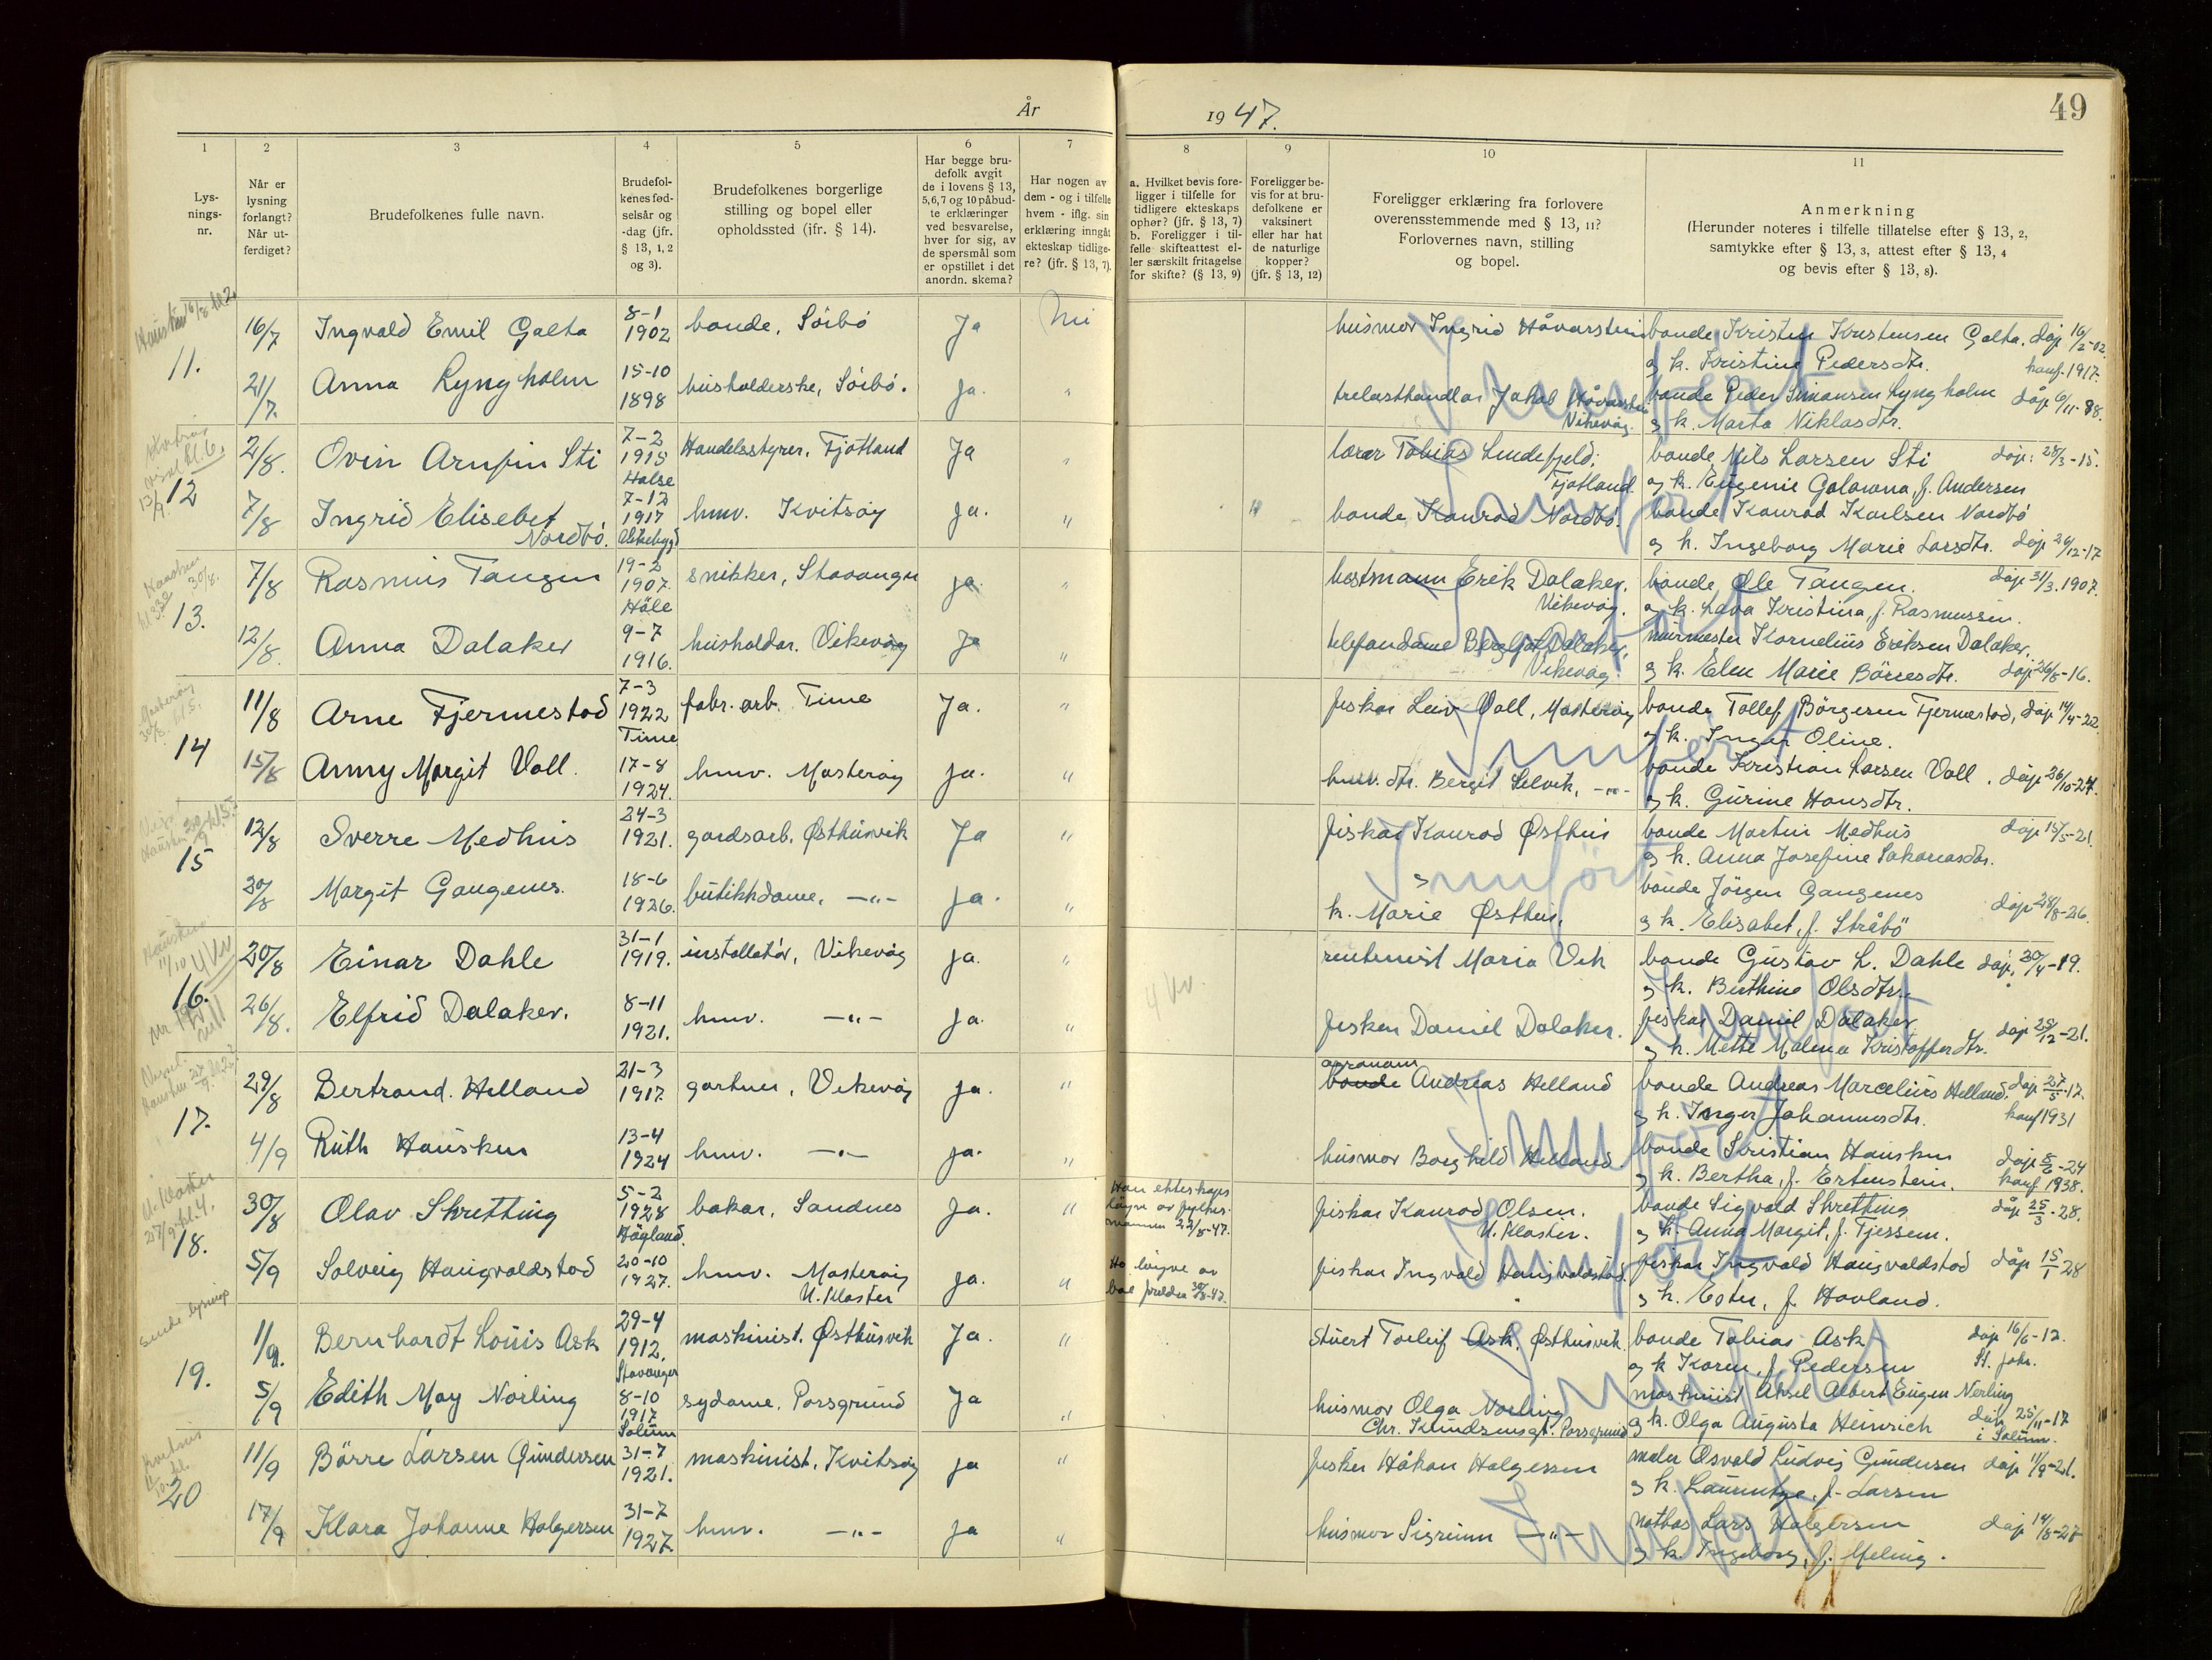 År 1947.
49
1
2
3
4
5
6
7
8
9
10
11
Lys-
nings-
nr.
Når er
lysning
forlangt?
Når ut-
ferdiget?
Brudefolkenes fulle navn.
Brudefol-
kenes fød-
selsår og
-dag (jfr.
§ 13, 1, 2
og 3).
Brudefolkenes borgerlige
stilling og bopel eller
opholdssted (jfr. § 14).
Har begge bru-
defolk avgit
de i lovens § 13,
5,6,7 og 10 påbud-
te erklæringer
ved besvarelse,
hver for sig, av
de spørsmål som
er opstillet i det
anordn. skema?
Har nogen av
dem - og i tilfelle
hvem - iflg. sin
erklæring inngåt
ekteskap tidlige-
re? (jfr. § 13, 7).
a. Hvilket bevis fore-
ligger i tilfelle for
tidligere ekteskaps
ophør? (jfr. § 13, 7)
b. Foreligger i til-
felle skifteattest el-
ler særskilt fritagelse
for skifte? (§ 13, 9)
Foreligger be-
vis for at bru-
defolkene er
vaksinert
eller har hat
de naturlige
kopper?
(jfr. § 13, 12)
Foreligger erklæring fra forlovere
overensstemmende med § 13, 11?
Forlovernes navn, stilling
og bopel.
Anmerkning
(Herunder noteres i tilfelle tillatelse efter § 13, 2,
samtykke efter § 13, 3, attest efter § 13, 4
og bevis efter § 13, 8).
11.
16/7 Ingvald Emil Galta 8-1 1902 bonde, Söibö Ja Nei husmor Ingrid Håvarstein bonde Kristen Kristensen Galta. döp 16/2-02.
g k. Kristine Pedersdtr. konf. 1917.
21/7. Anna Lyngholm 15-10 1898 husholderske, Söibö. ja. " trelasthandlar Jakob Håvarstein Vikevåg. bonde Peder Simonsen Lyngholm döp 6/11-98.
g k. Marta Niklasdtr.
12
2/8. Ovin Arnfin Sti 7-2 1915 Halse Handelsstyrer, Fjotland Ja " lærar Tobias Lindefjeld, Fjotland. bonde Nils Larsen Sti döp: 28/3-15.
g k. Eugenie Galawna, f. Andersen
7/8 Ingrid Elisebet Nordbö. 7-12 1917 hmv. Kvitsöy ja. " bonde Konrad Nordbö. bonde Konrad Karlsen Nordbö
g k. Ingeborg Marie Larsdtr. döp 26/12-17
13.
7/8 Rasmus Tangen 19-2 1907. Höle snikker, Stavanger ja. " hestmann Erik Dalaker, Vikevåg. bonde Ole Tangen. döp 31/3.1907.
g k. Lava Kristina f. Rasmussen.
12/8. Anna Dalaker 9-7 1916. husholdar. Vikevåg Ja " telefondame Bergljot Dalaker, Vikevåg. murmester Kornelius Eriksen Dalaker,
g k. Elen Marie Börresdtr. döp 26/8-16.
14
11/8 Arne Fjermestad 7-3 1922 Time fabr. arb. Time Ja. " fiskar Leiv Voll, Mosteröy bonde Tollef Börgesen Fjermestad, döp 14/4-22
g k. Inger Oline.
15/8 Anny Margit Voll. 17-8 1924. hmv. Mosteröy ja. " hmv. dtr. Bergit Selvik, -"- bonde Kristian Larsen Voll. döp 26/10-24.
g k. Gurine Hansdtr.
15
12/8 Sverre Medhus 24-3 1921. gardsarb. Østhusvik Ja " fiskar Konrad Østhus bonde Martin Medhus döp 15/5-21.
g k. Anna Josefine Sakariasdtr.
20/8 Margit Gangenes. 18-6 1926. butikkdame, -"- ja. " k. Marie Østhus. bonde Jörgen Gangenes
g k. Elisabet, f. Stråbö döp 28/8-26.
16.
20/8 Einar Dahle 31-1 1919. installatör, Vikevåg ja. " rentenist Maria Vik bonde Gustav L. Dahle döp. 30/4-19.
g k. Berthine Olsdtr.
26/8. Elfrid Dalaker. 8-11 1921. hmv. -"- ja. " fisker Daniel Dalaker. fiskar Daniel Dalaker
g k. Mette Malena Kristofferdtr. döp 25/12-21.
17.
29/8 Bertrand Helland 21-3 1917 gartner, Vikevåg ja. " bonde Andreas Helland bonde Andreas Marcelius Helland. döp 27/5-17.
g k. Inger Johannesdtr. konf 1931
4/9 Ruth Hausken 13-4 1924 hmv. -"- ja. " husmor Borghild Helland. bonde Kristian Hausken döp 8/6-24
g k. Bertha, f. Ertenstein. konf 1938.
18.
30/8 Olav Skretting 5-2 1928 Högland bakar, Sandnes Ja. " Han ekteskaps löyve av fylkes- mannen 22/8-47. fiskar Konrad Olsen. U. Kloster. bonde Sigvald Skretting döp 25/3-28.
g k. Anna Margit, f. Tjessem.
5/9 Solveig Haugvaldstad 20-10 1927. hmv. Mosteröy U. Kloster ja. " Ho löyve av foreldre 30/8-47. fiskar Ingvald Haugvaldstad. fiskar Ingvald Haugvaldstad döp 15/1 28
g k. Ester, f. Hovland.
19.
1/9. Bernhardt Louis Ask 29-4 1912. Stavanger maskinist, Østhusvik Ja. " stuert Torleif Ask, Østhusvik. bonde Tobias Ask döp 16/6-12.
g k Karen, f. Pedersen St. Joh.
5/9 Edith May Norling 8-10 1917 Solum sydame, Porsgrund Ja " husmor Olga Norling Porsgrund maskinist Aksel Albert Eugen Nerling
g k. Olga Augusta Heinrich döp 25/11-17 i Solum.
20
11/9 Börre Larsen Gundersen 31-7 1921. maskinist, Kvitsöy ja " fisker Håkon Holgersen maler Osvald Ludvig Gundersen döp 11/9-21.
g k. Laurentze, f. Larsen
17/9 Klara Johanne Holgersen 31-7 1927. hmv. -"- ja " husmor Sigrunn -"- notbas Lars Holgersen döp 14/8-27
g k. Ingeborg, f. Meling.
Innført